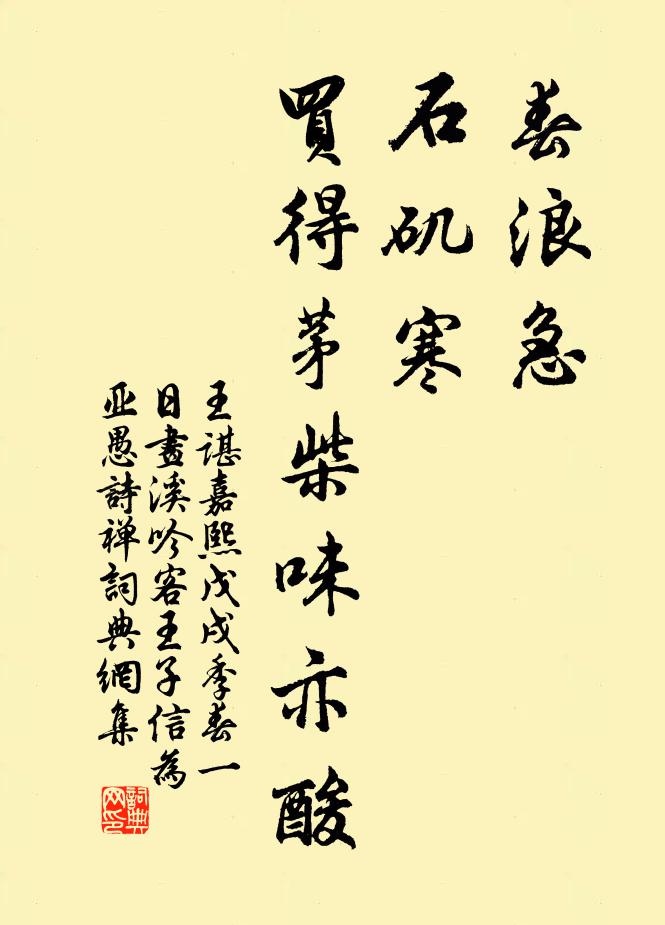 春浪急
石矶寒
買得茅柴味亦酸
王諶嘉熙戊戌季春一
日畫溪吟客王子信為
亚愚詩禅詞典網集
詞典网印